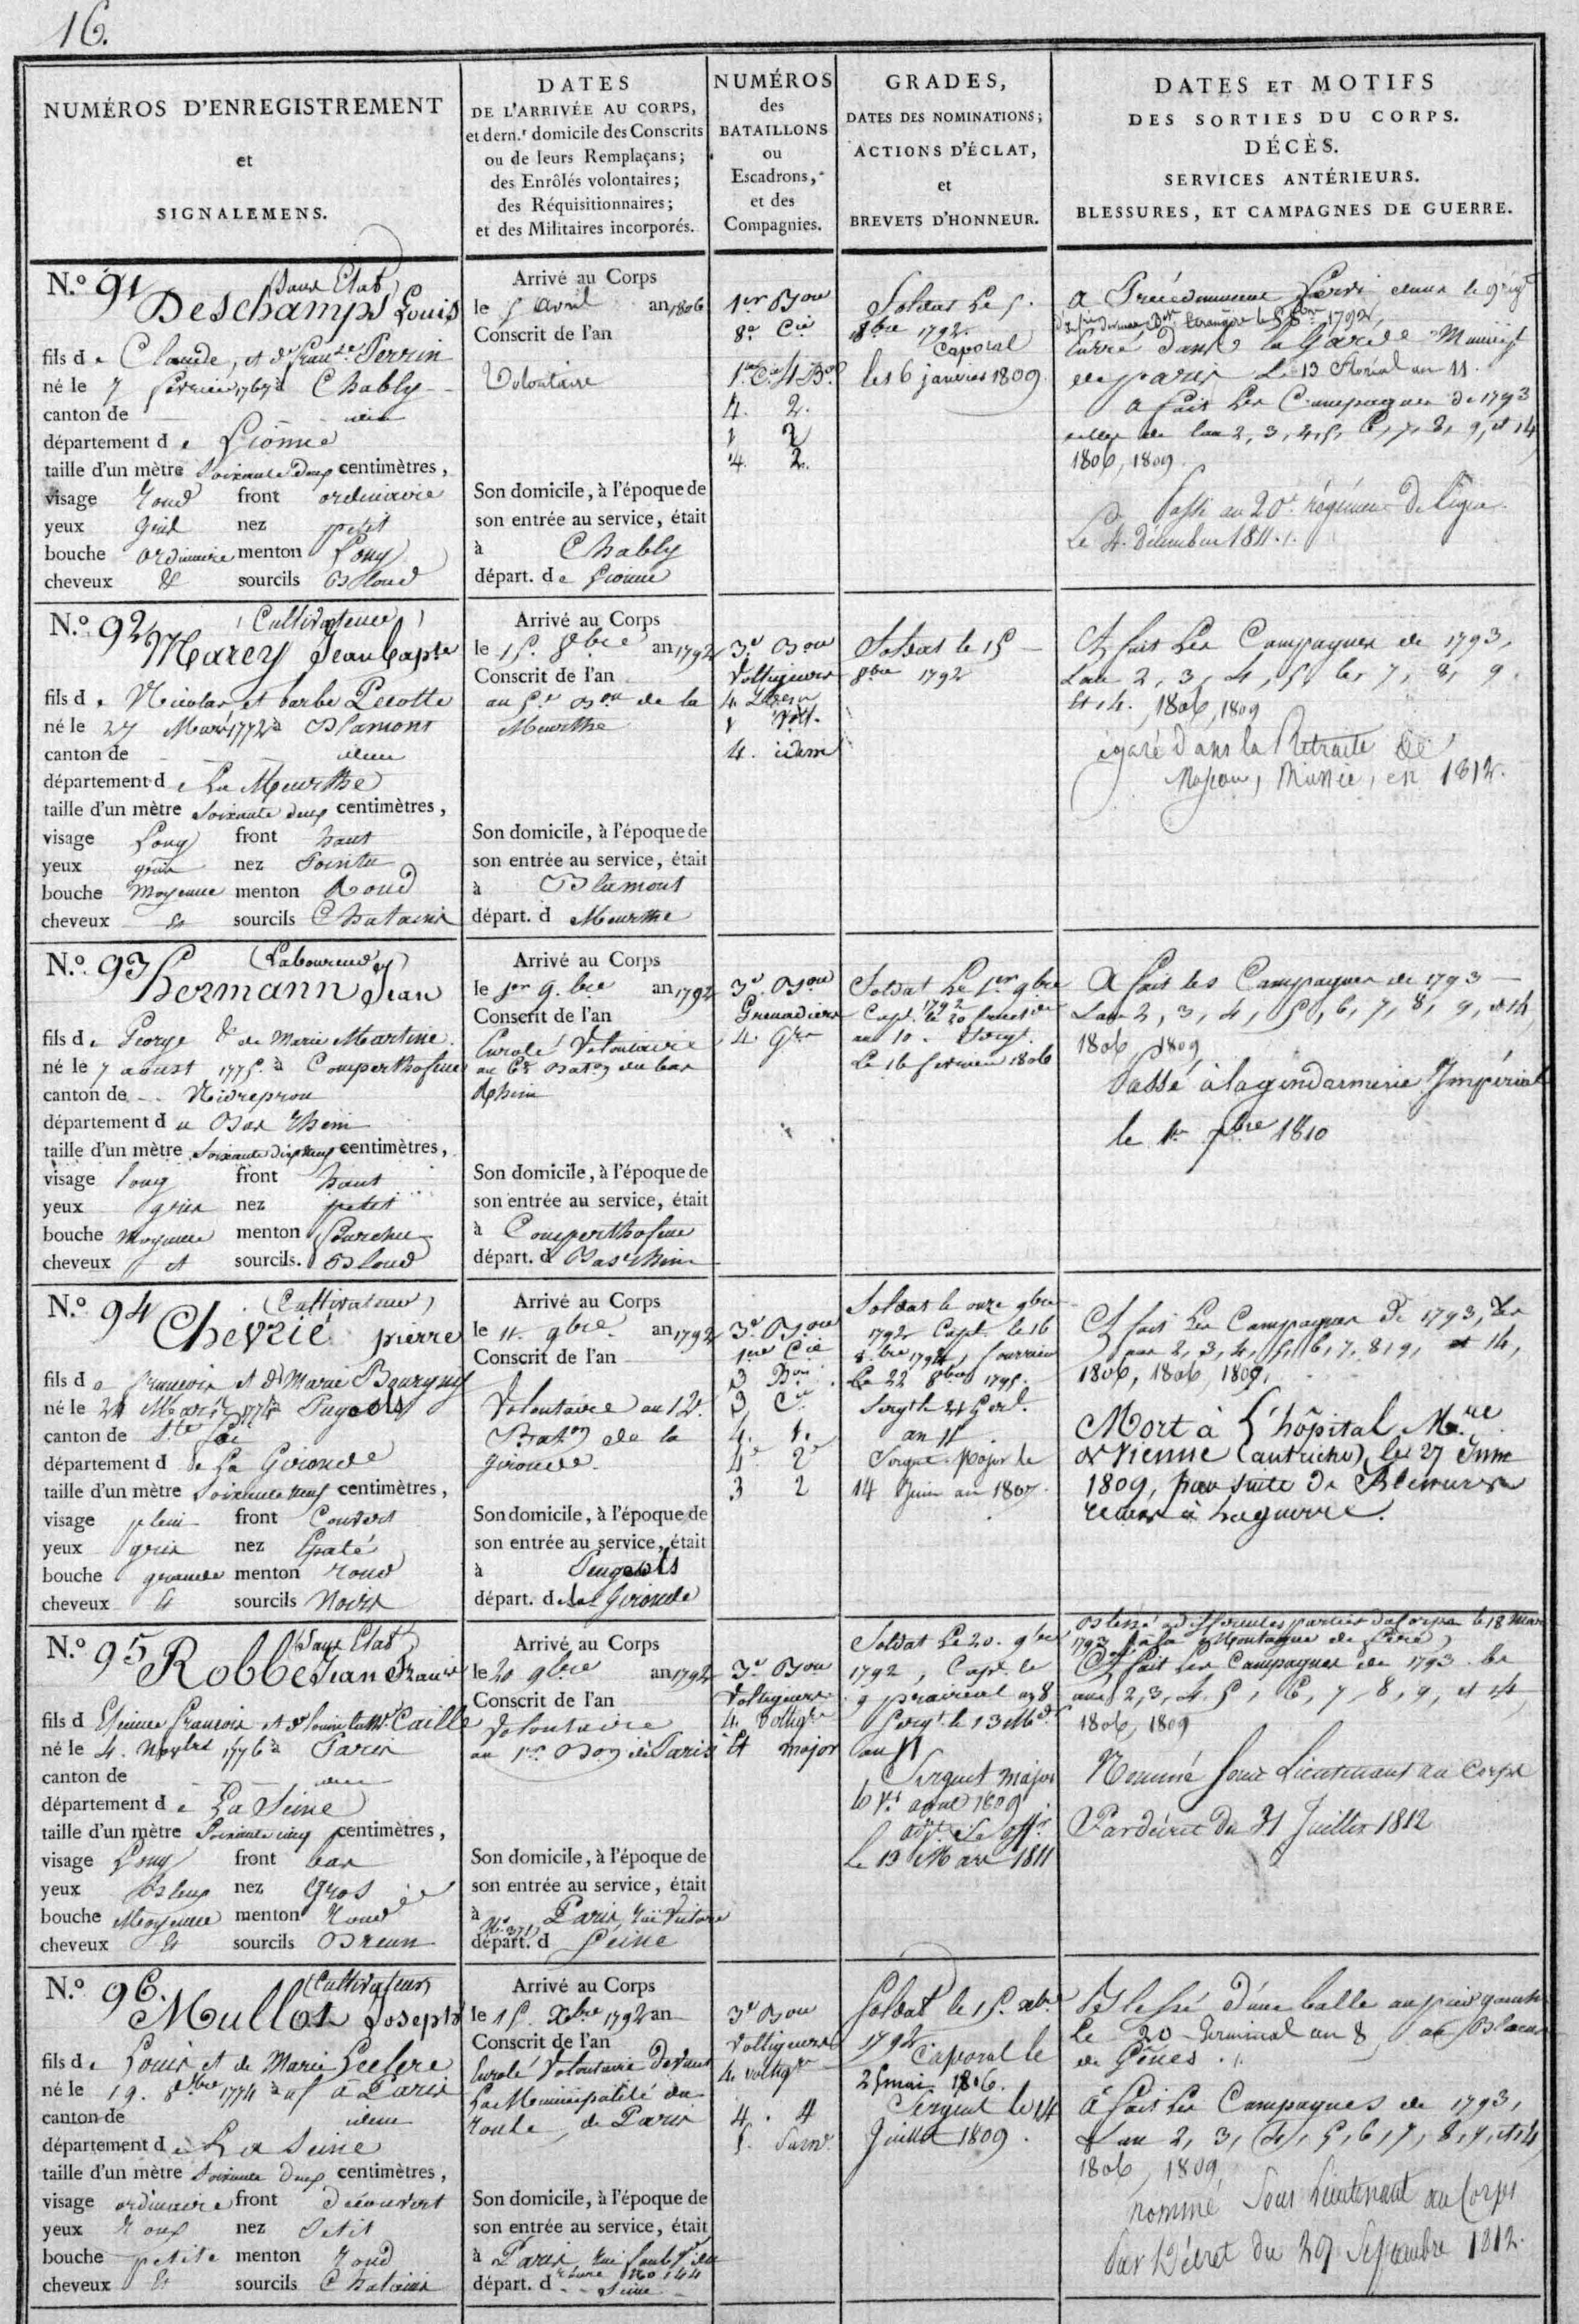 16.
NUMÉROS D'ENREGISTREMENT
et
SIGNALEMENS.
DATES
DE L'ARRIVÉE AU CORPS,
et dern.r domicile des Conscrits
ou de leurs Remplaçans;
des Enrôlés volontaires;
des Réquisitionnaires;
et des Militaires incorporés.
NUMÉROS
des
BATAILLONS
ou
Escadrons,
et des
Compagnies.
GRADES,
DATES DES NOMINATIONS;
ACTIONS D'ÉCLAT,
et
BREVETS D'HONNEUR.
DATES ET MOTIFS
DES SORTIES DU CORPS.
DÉCÈS.
SERVICES ANTÉRIEURS.
BLESSURES, ET CAMPAGNES DE GUERRE.
N.o 91 (Sans Etat)
Deschamps Louis
fils de Claude, et de Perrin
né le 7 février 1767 à Chably
canton de idem
département de Lionne
taille d'un mètre soixante deux centimètres,
visage rond front ordinaire
yeux gris nez petit
bouche ordinaire menton Long
cheveux & sourcils Blond
Arrivé au Corps
le 5 avril an 1806
Conscrit de l'an
Volontaire
Son domicile, à l'époque de
son entrée au service, était
à Chably
départ. de Lionne
1er Bon
8e Cie
1re Cie 4 Bon
4. 2.
1 2
4. 2.
Soldat Le 5.
8bre 1792.
Caporal
les 6 janvier 1809
a Précédemment Servi dans le
1792,
entré dans la Garde Municip
de paris Le 13 floréal an 11.
a fait Les Campagnes de 1793
celles de l'an 2, 3, 4, 5, 6, 7, 8, 9, et 14
1806, 1809
Passé au 20e régiment De ligne
Le 4 Décembre 1811.
N.o 92 (Cultivateur)
Marey Jean Bapte
fils de Nicolas, et barbe Pecotte
né le 27 Mars 1772 à Blamont
canton de idem
département de La Meurthe
taille d'un mètre soixante deux centimètres,
visage Long front haut
yeux gris nez Pointu
bouche Moyenne menton Rond
cheveux & sourcils Chatains
Arrivé au Corps
le 15. 8bre an 1792
Conscrit de l'an
au 5e Bon de la
Meurthe
Son domicile, à l'époque de
son entrée au service, était
à Blamont
départ. d Meurthe
3e Bon
Voltigeurs
4.
1 Volt.
4. idem
Soldat le 15
8bre 1792
A fait Les Campagnes de 1793,
L'an 2, 3, 4, 5, 6, 7, 8, 9.
et 14. 1806, 1809
égaré dans la Retraite de
Moscou, Russie, en 1812.
N.o 93 (Laboureur)
Hermann Jean
fils de George & de Marie Martine
né le 7 aoust 1775 à
canton de
département du Bas Rhin
taille d'un mètre soixante dix neuf centimètres,
visage long front haut
yeux gris nez petit
bouche Moyenne menton fourchu
cheveux et sourcils. Blond
Arrivé au Corps
le 1er 9.bre an 1792
Conscrit de l'an
Enrolé Volontaire
au 6e Baton du bas
Rhin
Son domicile, à l'époque de
son entrée au service, était
à
départ. d Bas Rhin
3e Bon
Grenadiers
4 Gr
Soldat Le 1er 9bre
1792
Capl le 20
an 10. Sergt
Le 16 fevrier 1806
A fait les Campagnes de 1793
L'an 2, 3, 4, 5, 6, 7, 8, 9, et 14
1806, 1809
Passé à la gendarmerie Impériale
le 1er 7bre 1810
N.o 94 (Cultivateur)
Chevrié pierre
fils de francois et de Marie
né le Mars à Pugeols
canton de
département de La Gironde
taille d'un mètre soixante neuf centimètres,
visage plein front Couvert
yeux gris nez Epaté
bouche grande menton rond
cheveux & sourcils Noirs
Arrivé au Corps
le 11. 9bre an 1792
Conscrit de l'an
Volontaire au 12.
Baton de la
Gironde.
Son domicile, à l'époque de
son entrée au service, était
à
départ. de La Gironde
3e Bon
1ere Cie
3 Bon
3 Cie
4. 1.
4e 2e
3 2
Soldat le onze 9bre
1792 Capl. le 16
8.bre 1794, fourrier
Le 22 8bre 1795.
Sergt le 21 Gerl.
an 11
Sergent Major le
14 Juin an 1807
A fait Les Campagnes De 1793, Les
ans 2, 3, 4, 5, 6, 7, 8, 9, et 14,
1806, 1806, 1809.
Mort à L'hôpital Mre
de Vienne (autriche), le 27 Juin
1809, par suite de Blessures
recues à la guerre.
N.o 95 (Sans Etat)
Robbe Jean
fils d Etienne francois et de Caille
né le 4. Novbre 1776 à Paris
canton de idem
département de La Seine
taille d'un mètre Soixante cinq centimètres,
visage Long front bas
yeux Bleus nez Gros
bouche Moyenne menton rond
cheveux & sourcils Breun
Arrivé au Corps
le 20 9bre an 1792
Conscrit de l'an
Volontaire
au 1er Bon de Paris
Son domicile, à l'époque de
son entrée au service, était
à Paris, rue
No 371
départ. d Seine
3e Bon
Voltigeurs
4. Voltigr
Et major
Soldat Le 20. 9bre
1792, Capl. le
9 prairial an 8
Sergt. le 13
an 11
Sergent major
le 1er avril 1809
adjt S. off.
Le 19 Mars 1811
Blessé a differentes parties du Corps le 18 Mars
1793 à la Montagne de
A fait Les Campagnes de 1793. Les
ans 2, 3, 4, 5, 6, 7, 8, 9, et 14
1806, 1809
Nommé Sous Lieutenant au Corps
Par décret du 31 Juillet 1812
N.o 96. (Cultivateur)
Mullot Joseph
fils de Louis et de Marie
né le 19. 1774 à Paris
canton de idem
département de La Seine
taille d'un mètre soixante deux centimètres,
visage ordinaire front découvert
yeux roux nez Petit
bouche petite menton rond
cheveux & sourcils Chatains
Arrivé au Corps
le 15. Xbre 1792 an
Conscrit de l'an
Enrolé Volontaire Devant
La Municipalité du
roule, de Paris
Son domicile, à l'époque de
son entrée au service, était
à Paris, rue
No 144
départ. d Seine
3e Bon
Voltigeurs
4. voltigr
4. 4
5.
Soldat le 15. xbre
1792
Caporal le
25 mai 1806.
Sergent le 14
Juillet 1809.
Blessé d'une balle au gauche
Le 20 Germinal an 8, au Blocus
de Gênes.
A fait Les Campagnes de 1793,
L'an 2, 3, 4, 5, 6, 7, 8, 9, et 14
1806, 1809
nommé Sous Lieutenant au Corps
Par Décret du 29 Septembre 1812.